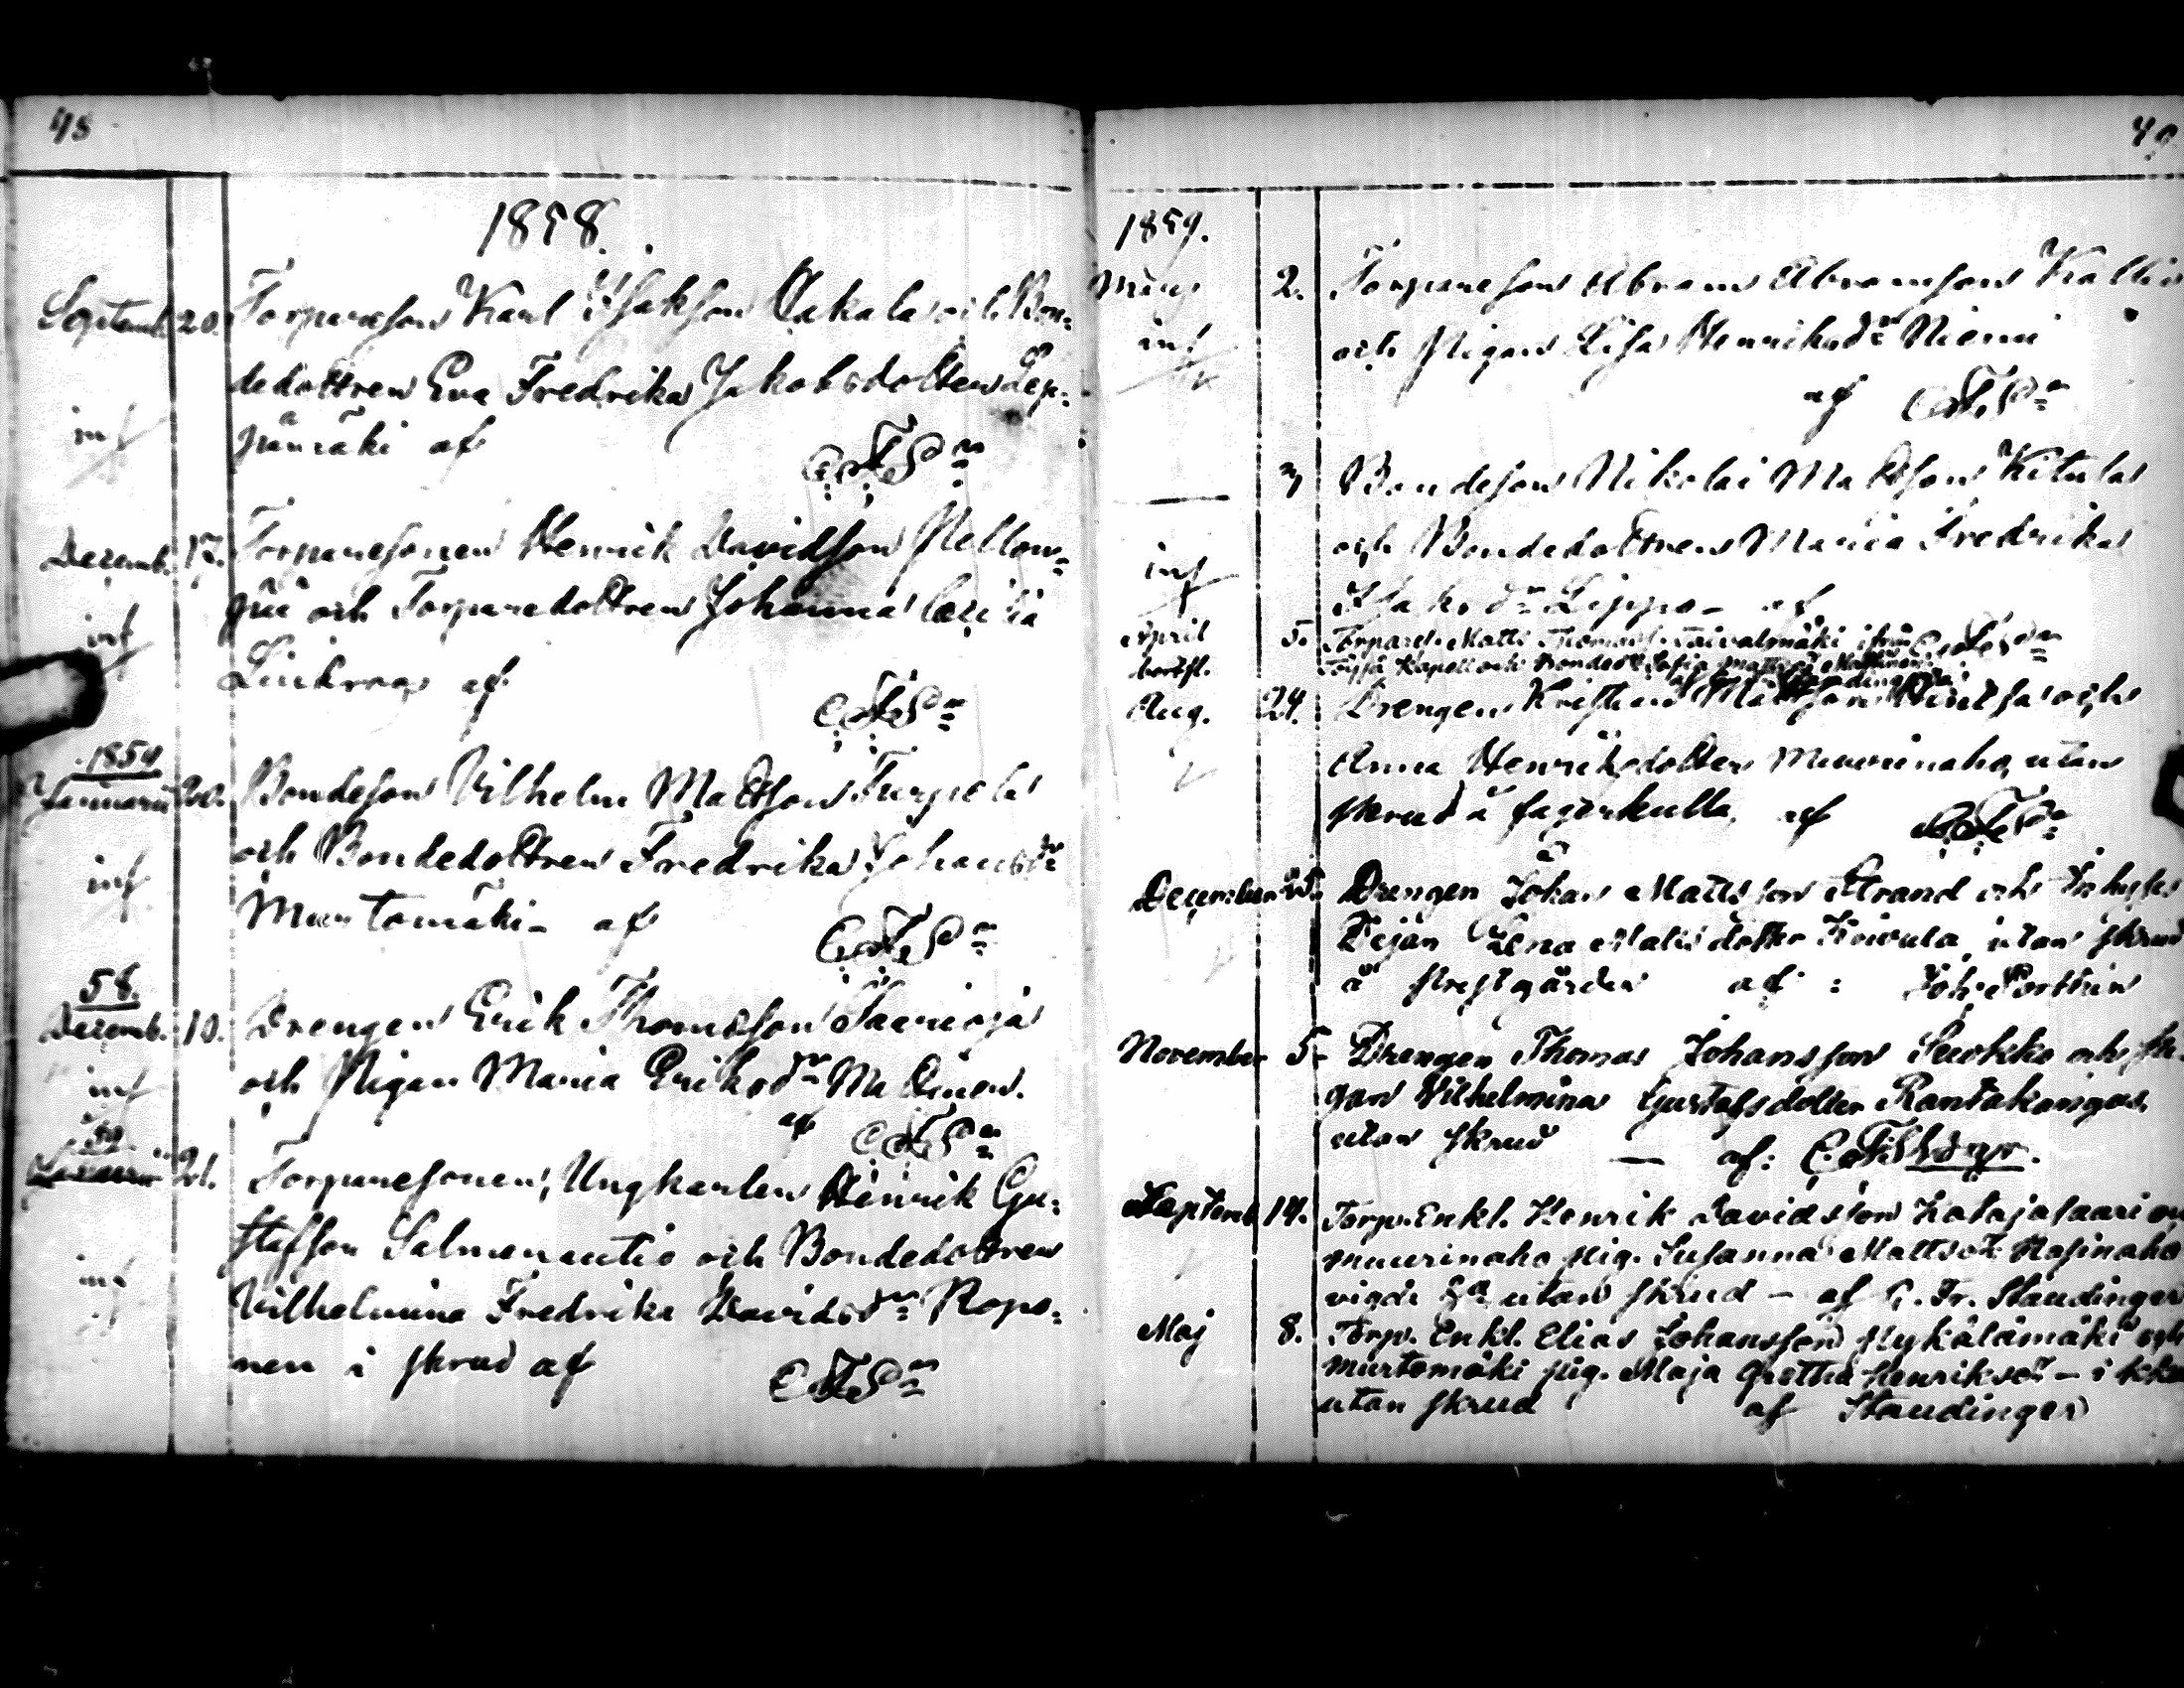 48
1858.
Septemb. 20. Torparesson Karl Isaksson Oakala och Bon-
dedottren Eva Fredrika Jakobsdotter Lep-
inf pämäki af
Dezemb. 17. Torparesonen Henrik Davidsson Pellon-
pää och Torparedottren Johanna
inf Linkroos af
1859
Januarii 20. Bondeson Vilhelm Mattsson Turpela
och Bondedottren Fredrika Johansdr
inf Murtomäki - af
58.
Dezemb. 10. Drengen Erik Thomasson Saarioja
inf och Pigan Maria Eriksdr Mattinen.
af
59
Januarii 21. Torparesonen, Ungkarlen Henrik Gu-
stafsson Salmenautio och Bondedottren
inf Vilhelmina Fredrika Davidsdr Ropo-
nen i skrud af
49
1859.
2. Torpareson Abram Abramsson Kallio
inf och Pigan Lisa Henriksdr Niemi
af
3 Bondeson Nikolai Mattsson Kitula
och Bondedottren Maria Fredrika
inf Isaksdr Lippo - af
April 5. Torpares. Matti Thomass. Taivalmäki ifrån
bortfl. Töysä Kapell och Bonded. Sofia Mattsdr Mattinen
Aug. 24. Drengen Kristian Mattsson och
Anna Henriksdotter Muurinaho, utan
skrud å fagerkulla, af
December 25. Drengen Johan Mattsson Strand och Inhyses
Pejan Lena Matsdotter Koivula, utan skrud
å prestgården af: Joh. Porthin
November 5 Drengen Thomas Johansson och Pi-
gan Vilhelmina Gustafsdotter Rantakangas
utan skrud — af:
Septemb 14. Torp. Enkl. Henrik Davidsson Katajasaari
muurinaho pig. Susanna Mattsdr
vigde utan skrud - af G. Fr. Staudinger
Maj 8. Torp. Enkl. Elias Johansson Pykälämäki och
murtomäki pig. Maja Gretha Henriksdr - i
utan skrud af Staudinger